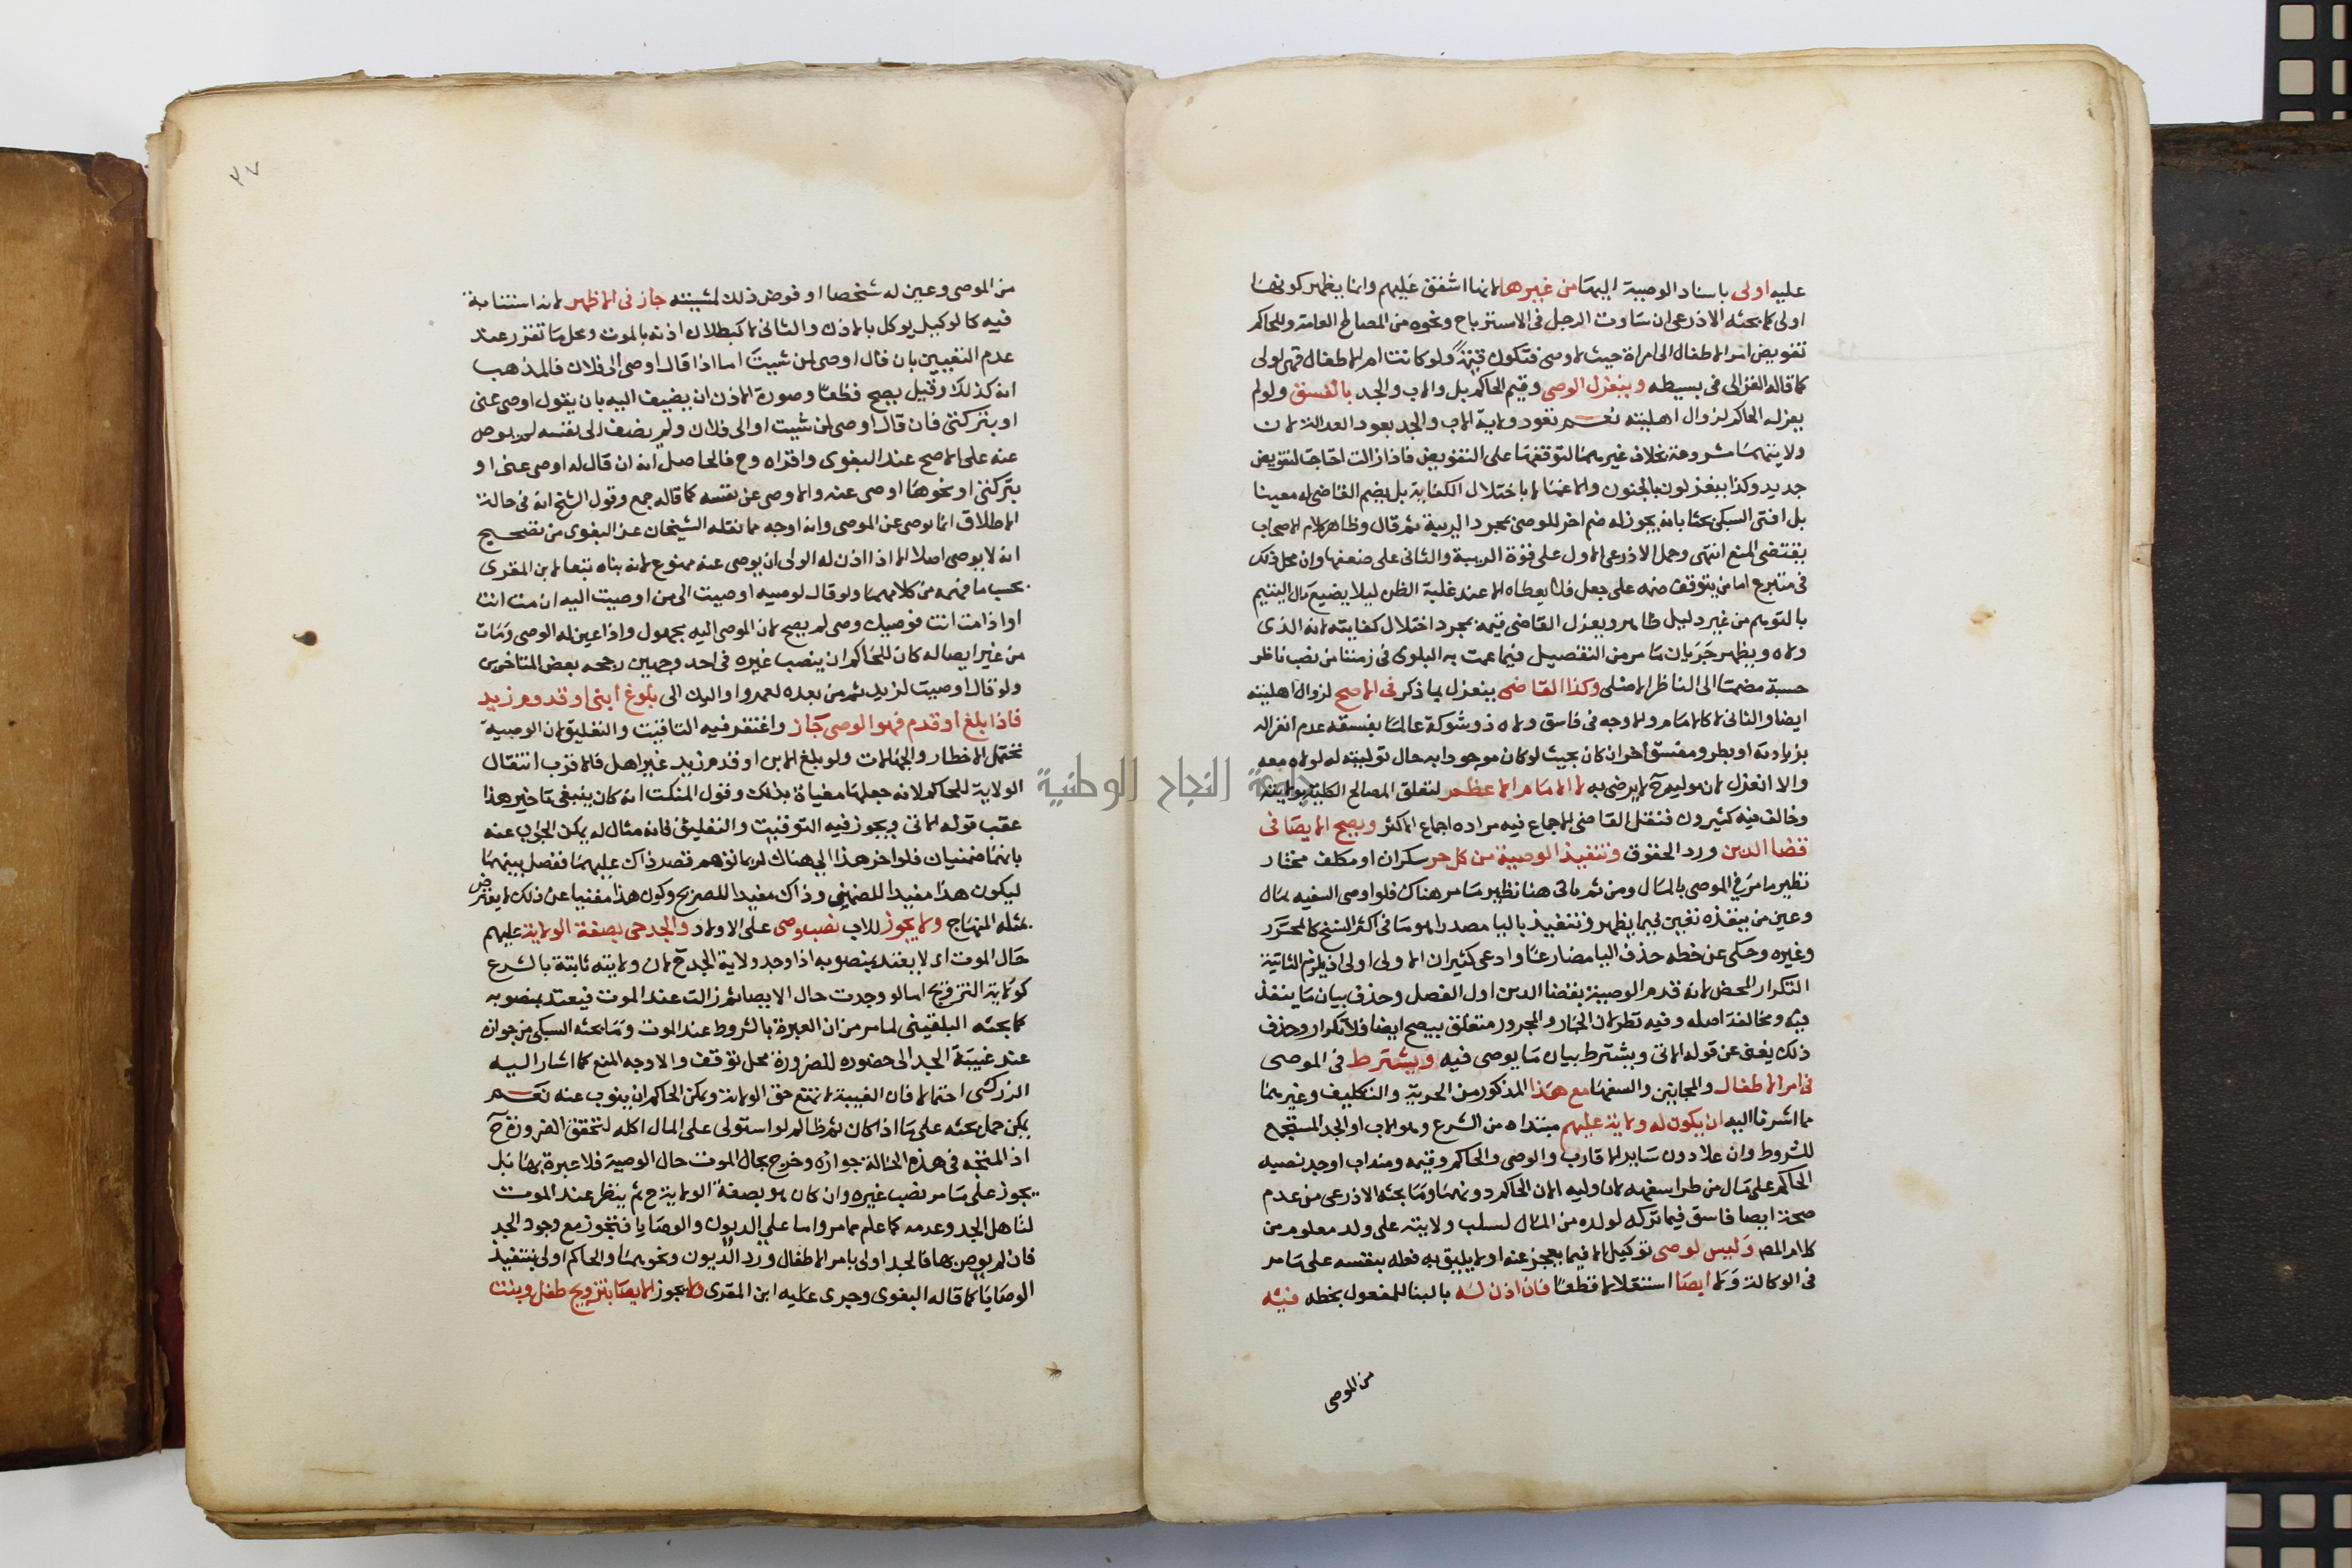 عليه اولى باسناد الوصية اليها من غيرها لانها اشفق عليهم وانما يظهر كونها
اولى كما بحثه الاذرعى ان ساوت الرجل فى الاسترباح ونحوه من المصالح العامة وللحاكم
تفويض امر الاطفال الى امراة حيث لا وصى فتكون قيمة ولو كانت ام الاطفال فهى اولى
كما قاله الغزالى فى بسيطه وينعزل الوصى وقيم الحاكم بل والاب والجد بالفسق ولو لم
يعزله الحاكم لزوال اهليته نعم تعود ولاية الاب والجد بعود العدالة لان
ولايتهما شرعية بخلاف غيرهما لتوقفها على التفويض فاذا زالت احتاجت لتفويض
جديد وكذا ينعزلون بالجنون والاغما لا باختلال الكفاية بل يضم القاضى له معينا
بل افتى السبكى بحثا بانه يجوز له ضم اخر للوصى بمجرد الريبة ثم قال وظاهر كلام الاصحاب
يقتضى المنع انتهى وحمل الاذرعى الاول على قوة الريبة والثانى على ضعفها وان محل ذلك
فى متبرع اما من يتوقف ضمه على جعل فلا يعطاه الا عند غلبة الظن ليلا يضيع مال اليتيم
بالتوهم من غير دليل ظاهر ويعزل القاضى قيمه بمجرد اختلال كفايته لانه الذى
ولاه ويظهر جريان ما مر من التفصيل فيما عمت به البلوى فى زمننا من نصب ناظر
حسبة منضما الى الناظر الاصلى وكذا القاضى ينعزل بما ذكر فى الاصح لزوال اهليته
ايضا والثانى لا كالامام والاوجه فى فاسق ولاه ذو شوكة عالما بفسقه عدم انعزاله
بزيادته او بطرو مفسق اخر ان كان بحيث لو كان موجودا به حال توليته له لولاه معه
والا انعزل لان موليه ح لا يرضى به لا الامام الاعظم لتعلق المصالح الكلية بولايته
وخالف فيه كثيرون فنقل القاضى الاجماع فيه مراده اجماع الاكثر ويصح الايصا فى
قضا الدين ورد الحقوق وتنفيذ الوصية من كل حر سكران او مكلف مختار
نظير ما مر فى الموصى بالمال ومن ثم ياتى هنا نظير ما مر هناك فلو اوصى السفيه بمال
وعين من ينفذه تعين فيما يظهر وتنفيذ باليا مصدرا هو ما فى اكثر النسخ كالمحرر
وغيره وحكى عن خطه حذف اليا مضارعا وادعى كثيران الاولى اولى اذ يلزم الثانية
التكرار المحض لانه قدم الوصية بقضا الدين اول الفصل وحذف بيان ما ينفذ
فيه ومخالفة اصله وفيه نظر لان الجار والمجرور متعلق بيصح ايضا فلا تكرار وحذف
ذلك يغنى عن قوله الاتى ويشترط بيان ما يوصى فيه ويشترط فى الموصى
فى امر الاطفال والمجانين والسفها مع هذا المذكور من الحرية والتكليف وغيرهما
مما اشرنا اليه ان يكون له ولاية عليهم مبتداه من الشرع وهو الاب او الجد المستجمع
للشروط وان علا دون ساير الاقارب والوصى والحاكم وقيمه ومنه اب او جد نصبه
الحاكم على مال من طرا سفهه لان وليه الان الحاكم دونهما وما بحثه الاذرعى من عدم
صحة ايصا فاسق فيما تركه لولده من المال لسلب ولايته على ولده معلوم من
كلام المص وليس لوصى توكيل الا فيما يعجز عنه او لا يليق به فعله بنفسه على ما مر
فى الوكالة ولا ايصا استقلالا قطعا فان اذن له بالبنا للمفعول بخطه فيه
من الموصى
٢٧
من الموصى وعين له شخصا او فوض ذلك لمشيئته جاز فى الاظهر لانه استنابة
فيه كالوكيل يوكل بالاذن والثانى لا كبطلان اذنه بالموت ومحل ما تقرر عند
عدم التعيين بان قال اوصى لمن شيت اما اذا قال اوصى الى فلان فالمذهب
انه كذلك وقيل يصح قطعا وصورة الاذن ان يضيف اليه بان يقول اوصى عنى
او بتركتى فان قال اوصى لمن شيت او الى فلان ولم يضف الى نفسه لم يوص
عنه على الاصح عند البغوى واقراه وح فالحاصل انه ان قال له اوصى عنى او
بتركتى او نحوها اوصى عنه والا وصى عن نفسه كما قاله جمع وقول الشيخ انه فى حالة
الاطلاق انما يوصى عن الموصى وانه اوجه مما نقله الشيخان عن البغوى من تصحيح
انه لا يوصى اصلا الا اذا اذن له الولى ان يوصى عنه ممنوع لانه بناه تبعا لابن المقرى
بحسب ما فهمه من كلامهما ولو قال لوصيه اوصيت الى من اوصيت اليه ان مت انت
او اذا مت انت فوصيك وصى لم يصح لان الموصى اليه مجهول واذا عين له الوصى ومات
من غير ايصا له كان للحاكم ان ينصب غيره فى احد وجهين رجحه بعض المتاخرين
ولو قال اوصيت لزيد ثم من بعده لعمرو او اليك الى بلوغ ابنى او قدوم زيد
فاذا بلغ او قدم فهو الوصى جاز واغتفر فيه التاقيت والتعليق لان الوصية
تحتمل الاخطار والجهالات ولو بلغ الابن او قدم زيد غير اهل فالاقرب انتقال
الولاية للحاكم لانه جعلها مغياة بذلك وقول المنكت انه كان ينبغى تاخير هذا
عقب قوله الاتى ويجوز فيه التوقيت والتعليق فانه مثال له يمكن الجواب عنه
بانهما ضمنيان فلو اخر هذا الى هناك لربما توهم قصد ذاك عليهما ففصل بينهما
ليكون هذا مفيدا للضمنى وذاك مفيدا للصريح وكون هذا مغنيا عن ذلك لا يعترض
بمثله المنهاج ولا يجوز للاب نصب وصى على الاولاد والجد حى بصفة الولاية عليهم
حال الموت اى لا يعتد بمنصوبه اذا وجد ولاية الجد ح لان ولايته ثابتة بالشرع
كولاية التزويج اما لو وجدت حال الايصا ثم زالت عند الموت فيعتد بمنصوبه
كما بحثه البلقينى لما مر من ان العبرة بالشروط عند الموت وما بحثه السبكى من جوازه
عند غيبة الجد الى حضوره للضرورة محل توقف والاوجه المنع كما اشار اليه
الزركشى احتمالا فان الغيبة لا تمنع حق الولاية ويمكن الحاكم ان ينوب عنه نعم
يمكن حمل بحثه على ما اذا كان ثم ظالم لو استولى على المال اكله لتحقق الضرورة ح
اذ المتجه فى هذه الحالة جوازه وخرج بحال الموت حال الوصية فلا عبرة بها بل
يجوز على ما مر نصب غيره وان كان هو بصفة الولاية ح ثم ينظر عند الموت
لتاهل الجد وعدمه كما علم مما مر واما على الديون والوصايا فيجوز مع وجود الجد
فان لم يوص بها فالجد اولى بامر الاطفال ورد الديون ونحوهما والحاكم اولى بتنفيذ
الوصايا كما قاله البغوى وجرى عليه ابن المقرى ولا يجوز الايصا بتزويج طفل وبنت